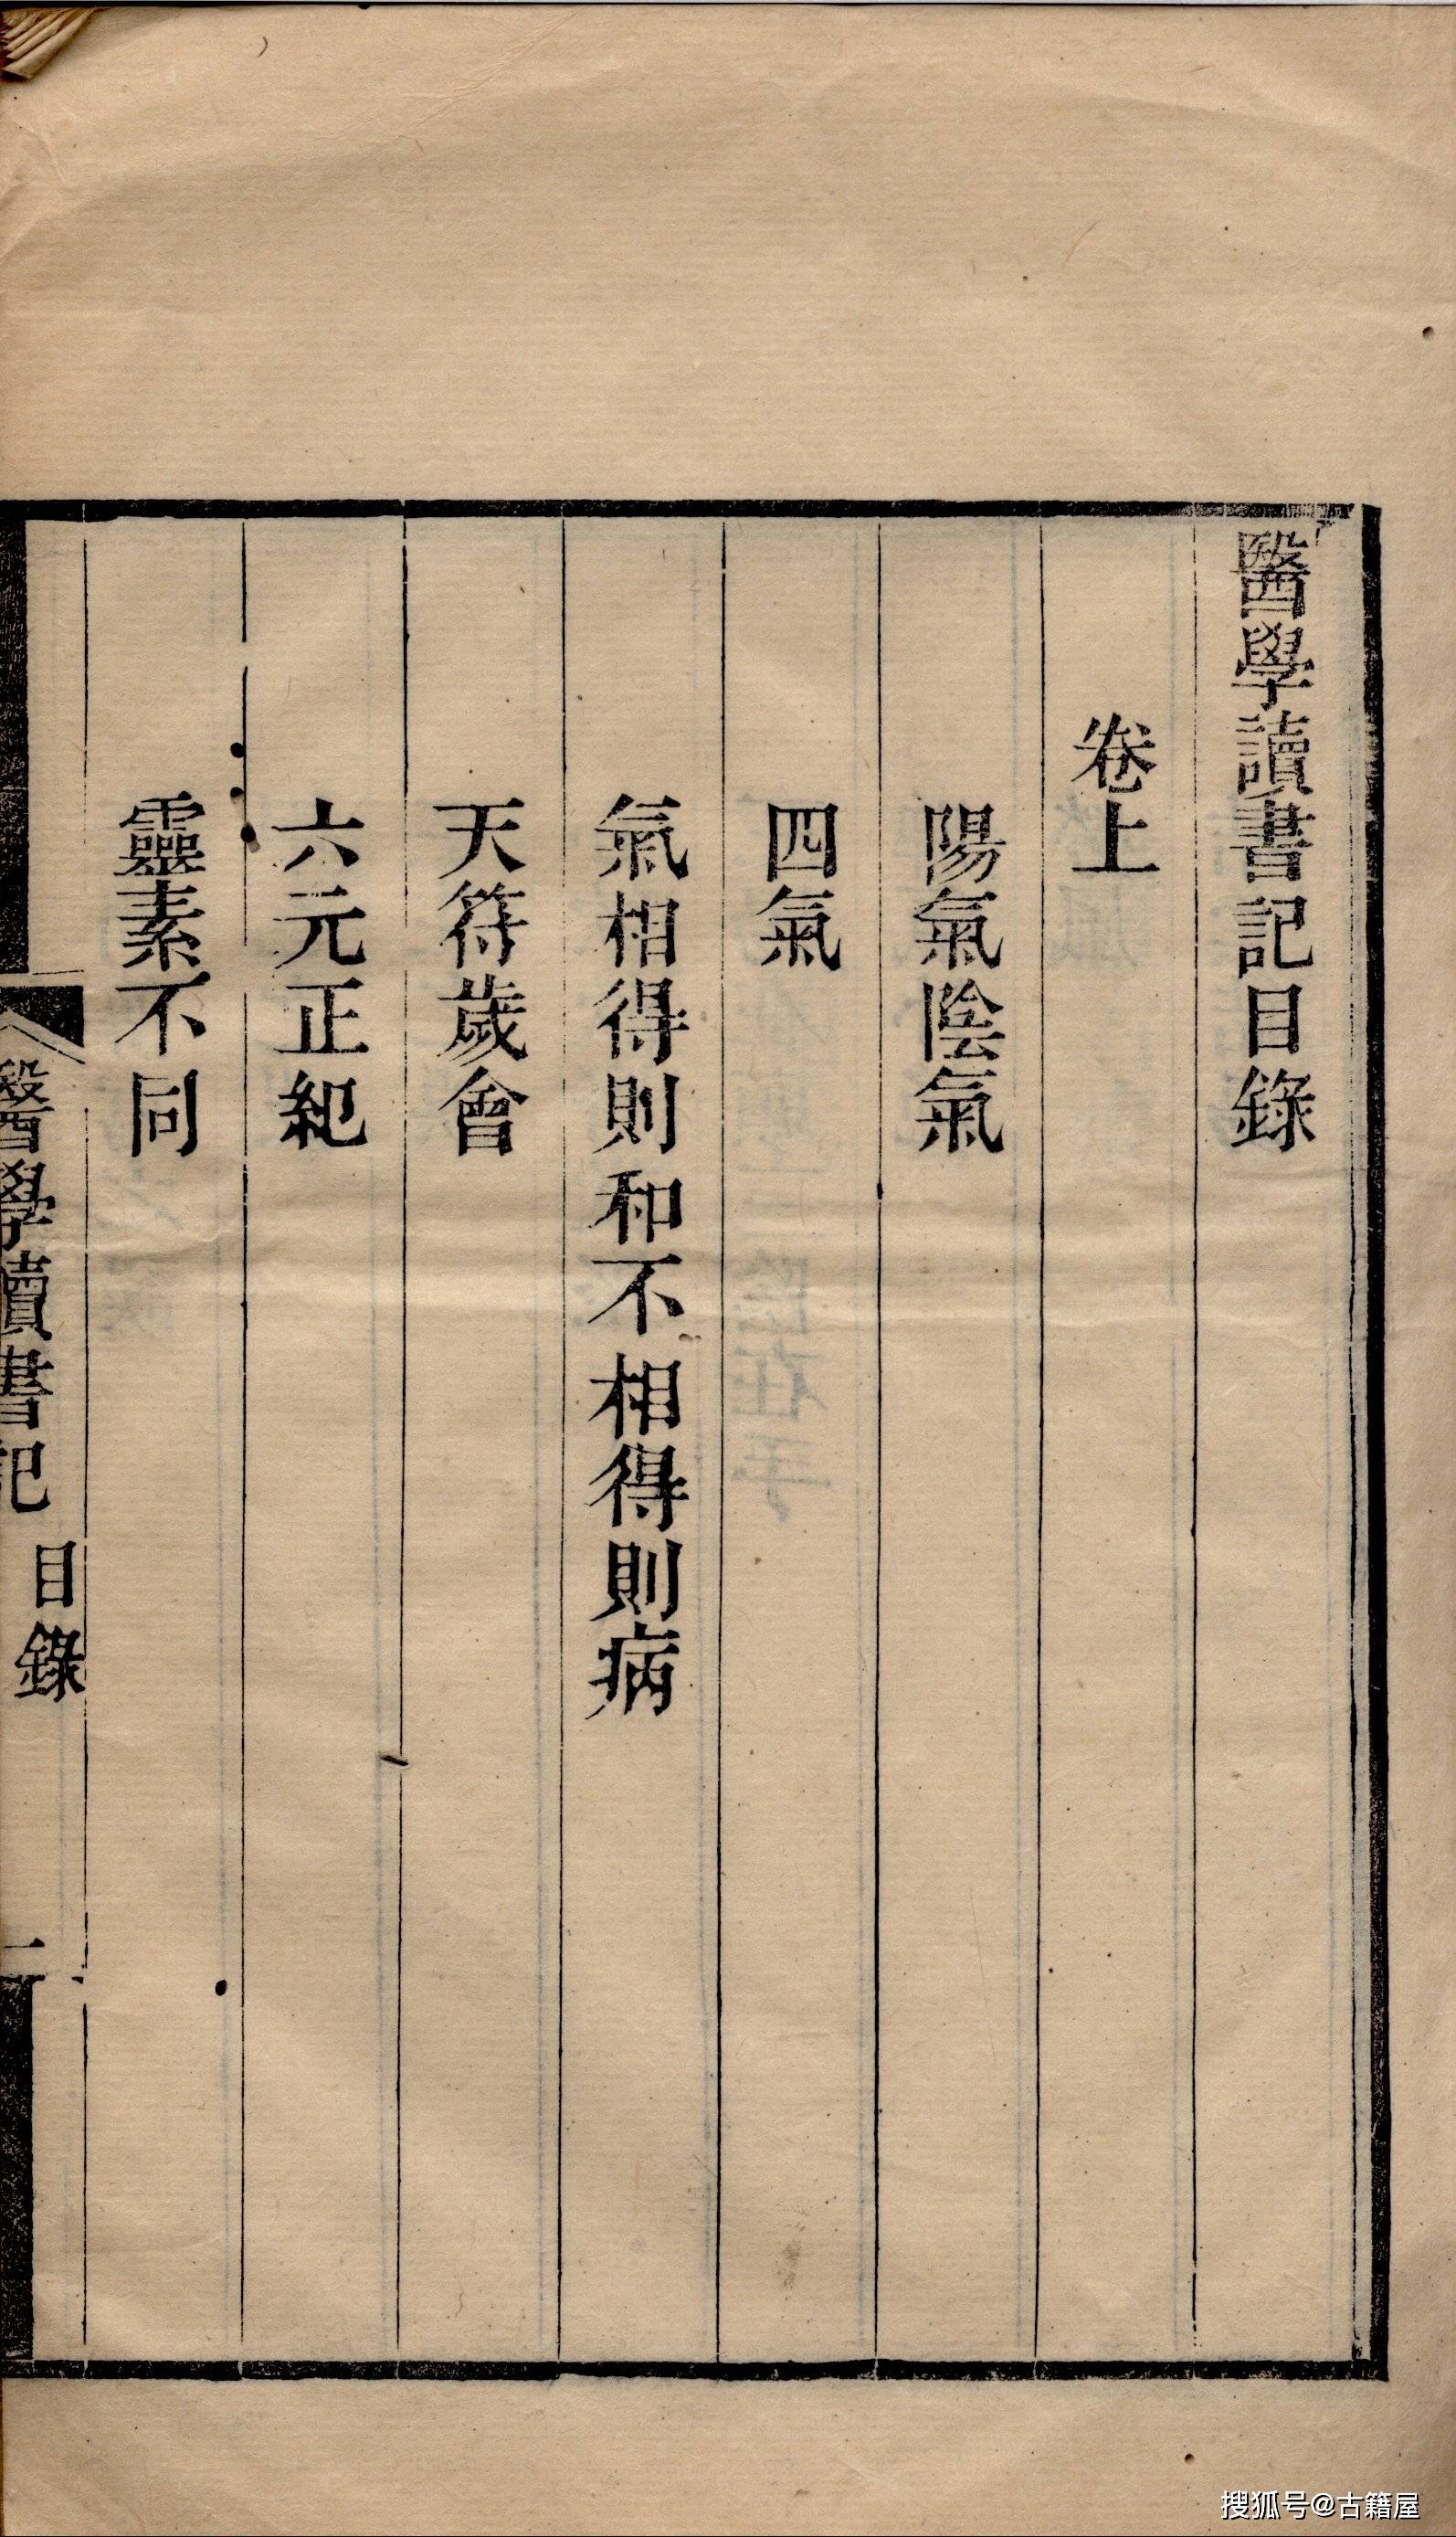 醫學讀書記目錄
卷上
陽氣陰氣
四氣
氣相得則和不相得則病
天符歲會
六元正紀
靈素不同
醫學讀書記
目錄
一
搜狐号@古籍屋